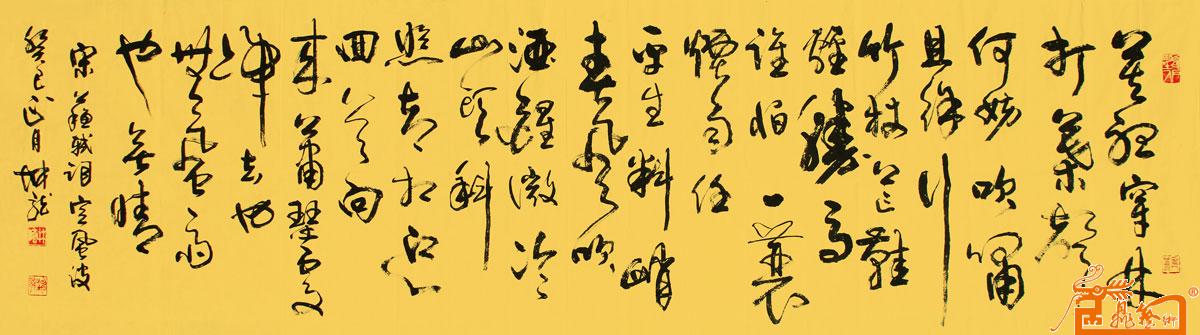 莫聽穿林
打葉聲
何妨吹嘯
且徐行
竹杖芒鞋
輕勝馬
誰怕一蓑
煙雨任
平生料峭
春風吹
酒醒微冷
山頭斜
照却相迎
回首向
來蕭瑟處
歸去也
無風雨
也無晴
宋蘇軾詞定風波
癸巳正月坤龍